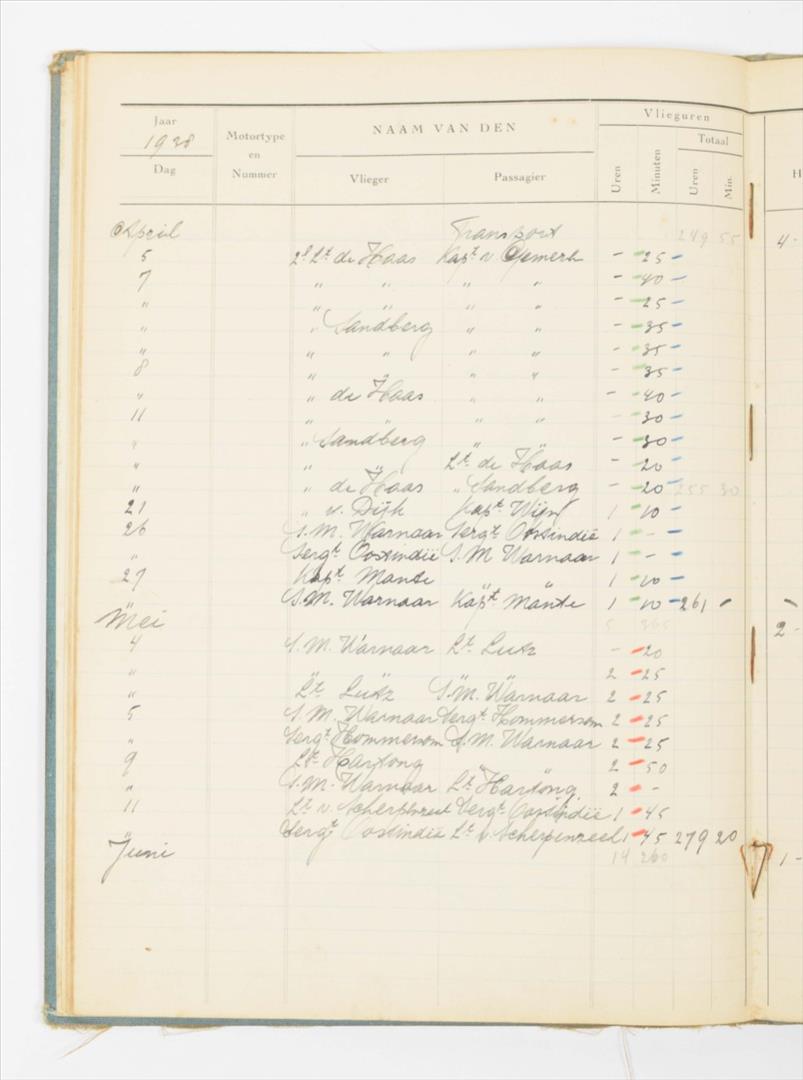 Jaar 1928 Motortype en Nummer NAAM VAN DEN Vlieguren
Dag Vlieger Passagier Uren Minuten Totaal Uren Min.
H
April Transport 249 55 4 -
5 2e Lt de Haas Kapt v. - 25 -
7 " " " " - 40 -
" " " " " - 25 -
" " Sandberg " " - 35 -
" " " " " - 35 -
8 " " " - 35 -
" " de Haas " " - 40 -
11 " " " " - 30 -
" " Sandberg " " - 30 -
" " " Lt. de Haas - 20 -
" " de Haas " Sandberg - 20 255 30
21 " v. Dijk Kapt. 1 10 -
26 S.M. Warnaar Sergt. Oostindië 1 - -
" Sergt Oostindië S.M. Warnaar 1 - -
27 Kapt Mante 1 10 -
" S.M. Warnaar Kapt. Mante 1 10 261 -
Mei 5 365 2 -
4 S.M. Warnaar Lt. Lutz - 20
" " " 2 25
" Lt. Lutz S.M. Warnaar 2 25
5 S.M. Warnaar Sergt. Hommersom 2 25
" Sergt. Hommersom S.M. Warnaar 2 25
9 Lt. Hartong 2 50
" S.M. Warnaar Lt. Hartong 2 - -
11 Lt. v. Scherpenzeel Sergt. Oostindië 1 45
" Sergt Oostindië Lt. v. Scherpenzeel 1 45 279 20
Juni 14 260 1 -